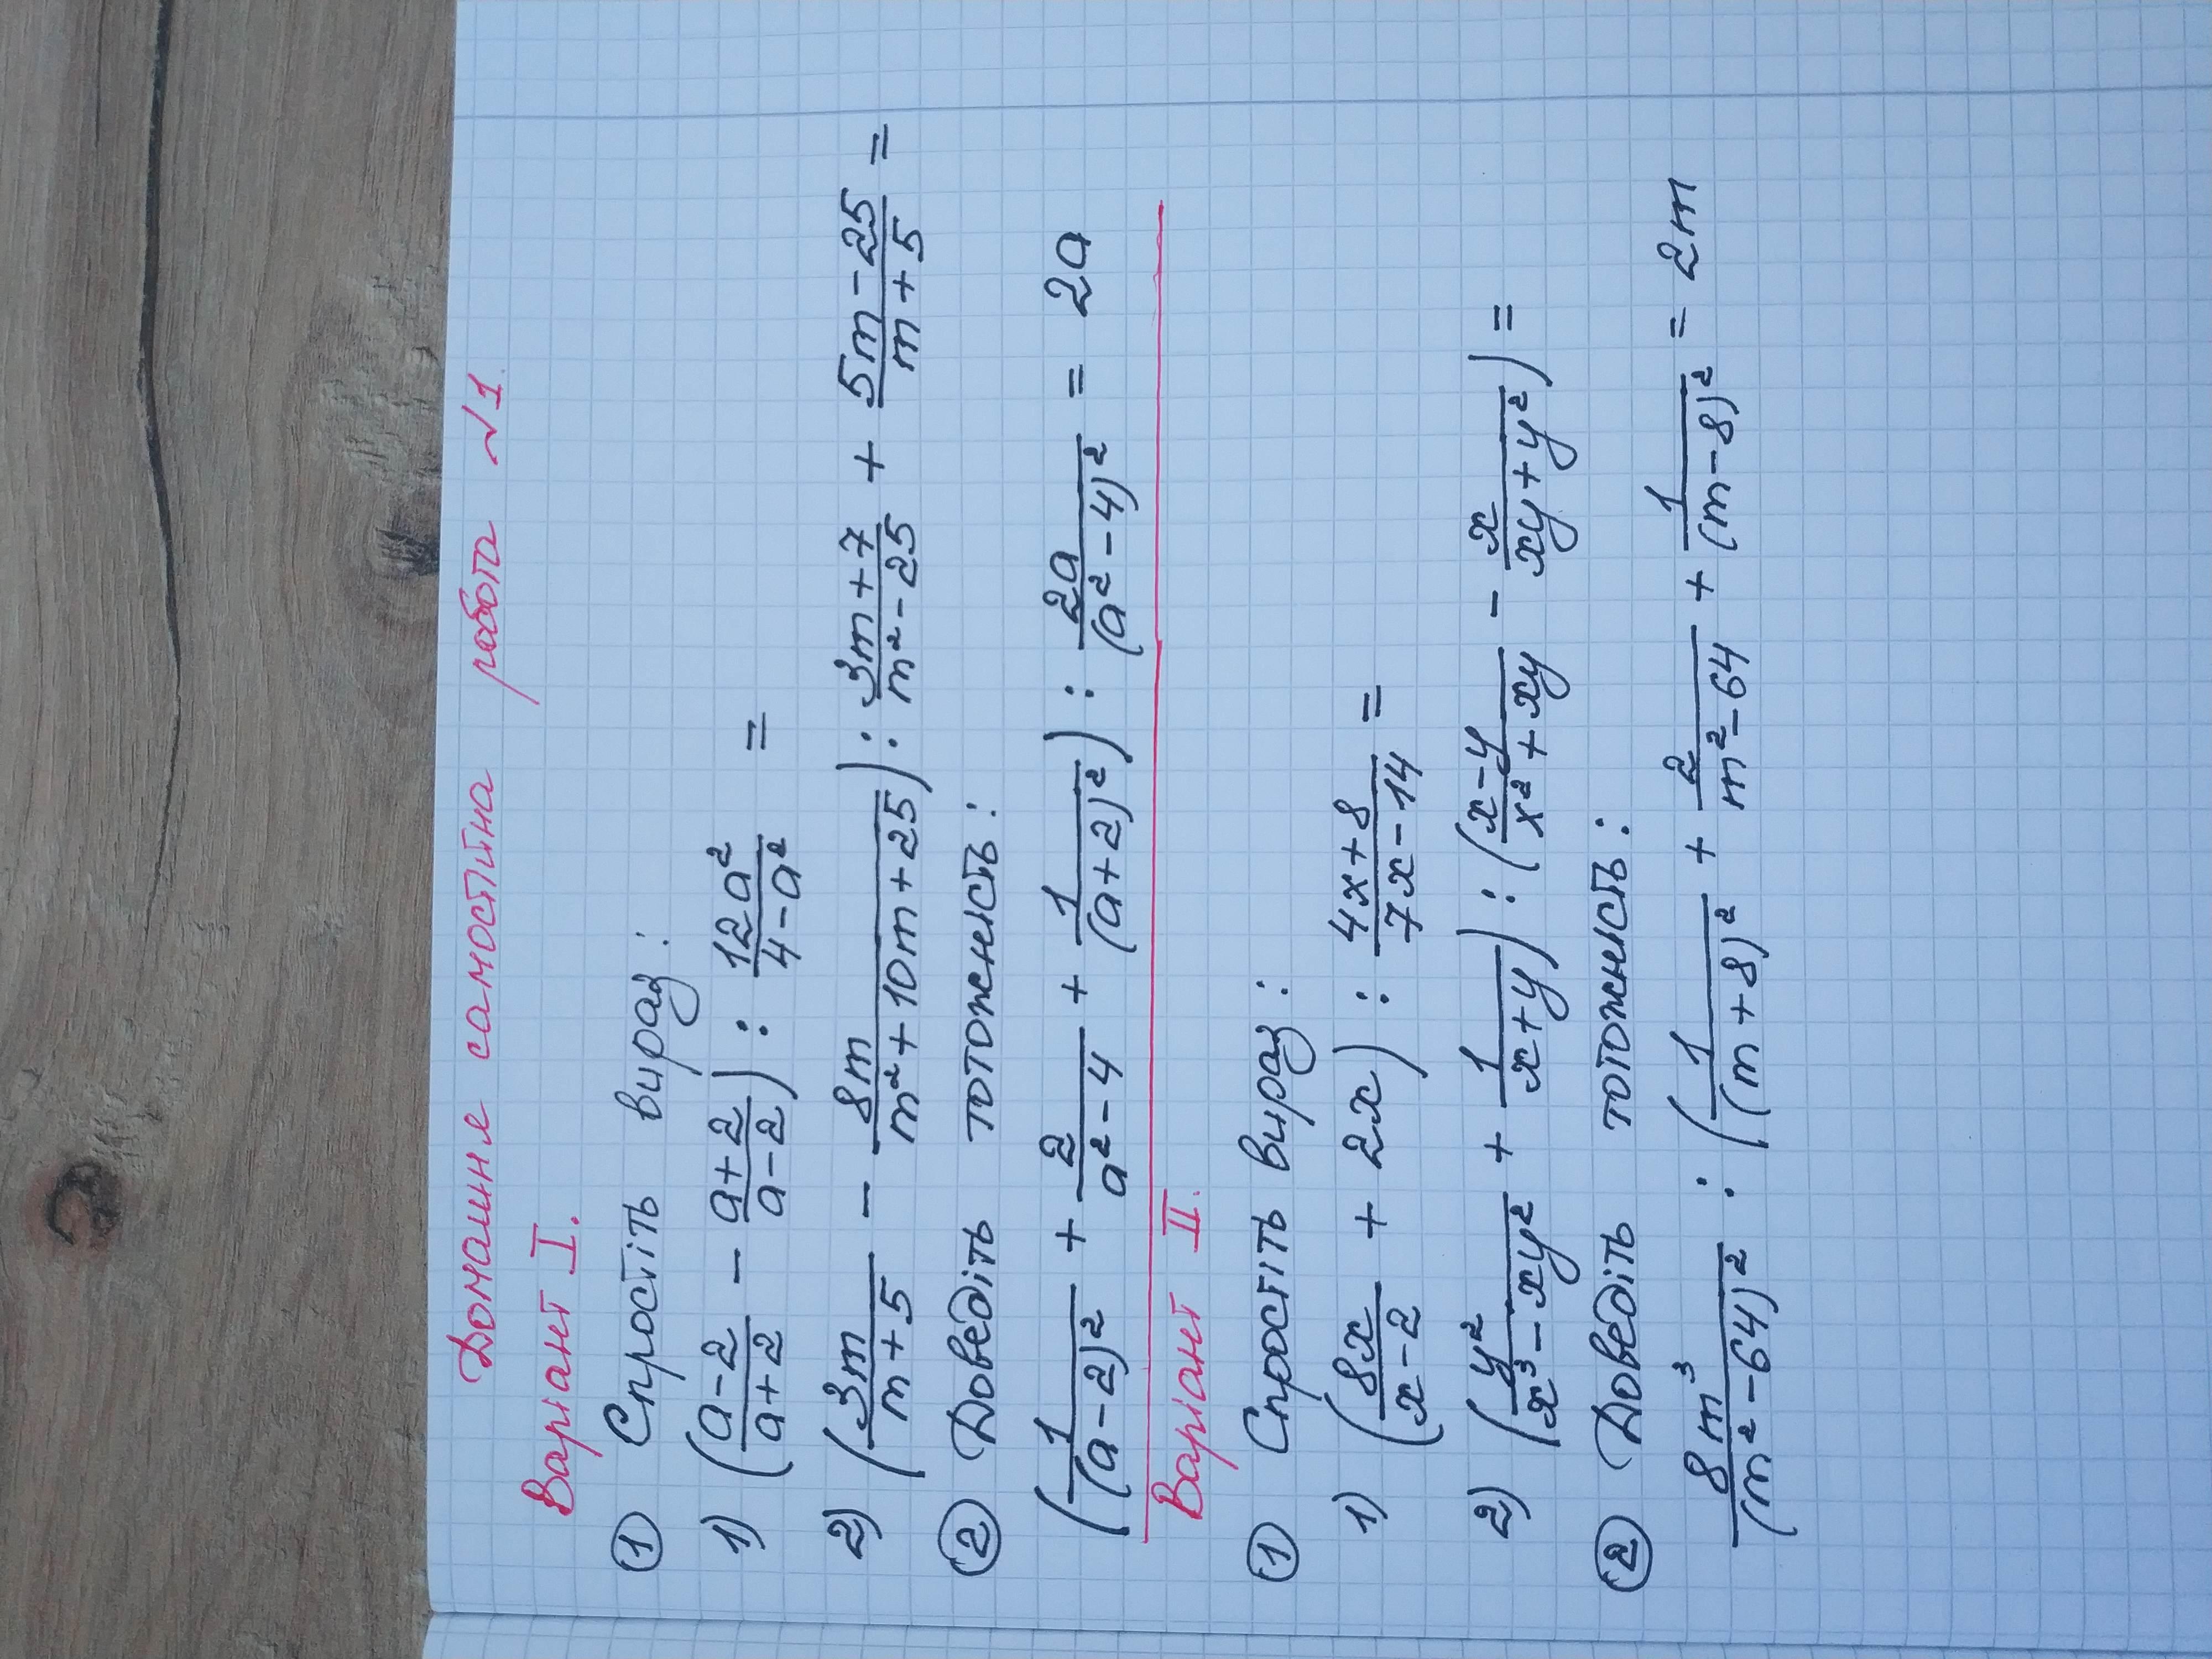 Домашня самостійна робота №1.
Варіант I.
① Спростіть вираз:
1) (\frac{a-2}{a+2} - \frac{a+2}{a-2}) : \frac{12a^2}{4-a^2} =
2) (\frac{3m}{m+5} - \frac{8m}{m^2+10m+25}) : \frac{3m+7}{m^2-25} + \frac{5m-25}{m+5} =
② Доведіть тотожність:
(\frac{1}{(a-2)^2} + \frac{2}{a^2-4} + \frac{1}{(a+2)^2}) : \frac{2a}{(a^2-4)^2} = 2a
Варіант II.
① Спростіть вираз:
1) (\frac{8x}{x-2} + 2x) : \frac{4x+8}{7x-14} =
2) (\frac{y^2}{x^3-xy^2} + \frac{1}{x+y}) : (\frac{x-y}{x^2+xy} - \frac{x}{xy+y^2}) =
② Доведіть тотожність:
\frac{8m^3}{(m^2-64)^2} : (\frac{1}{(m+8)^2} + \frac{2}{m^2-64} + \frac{1}{(m-8)^2} = 2m